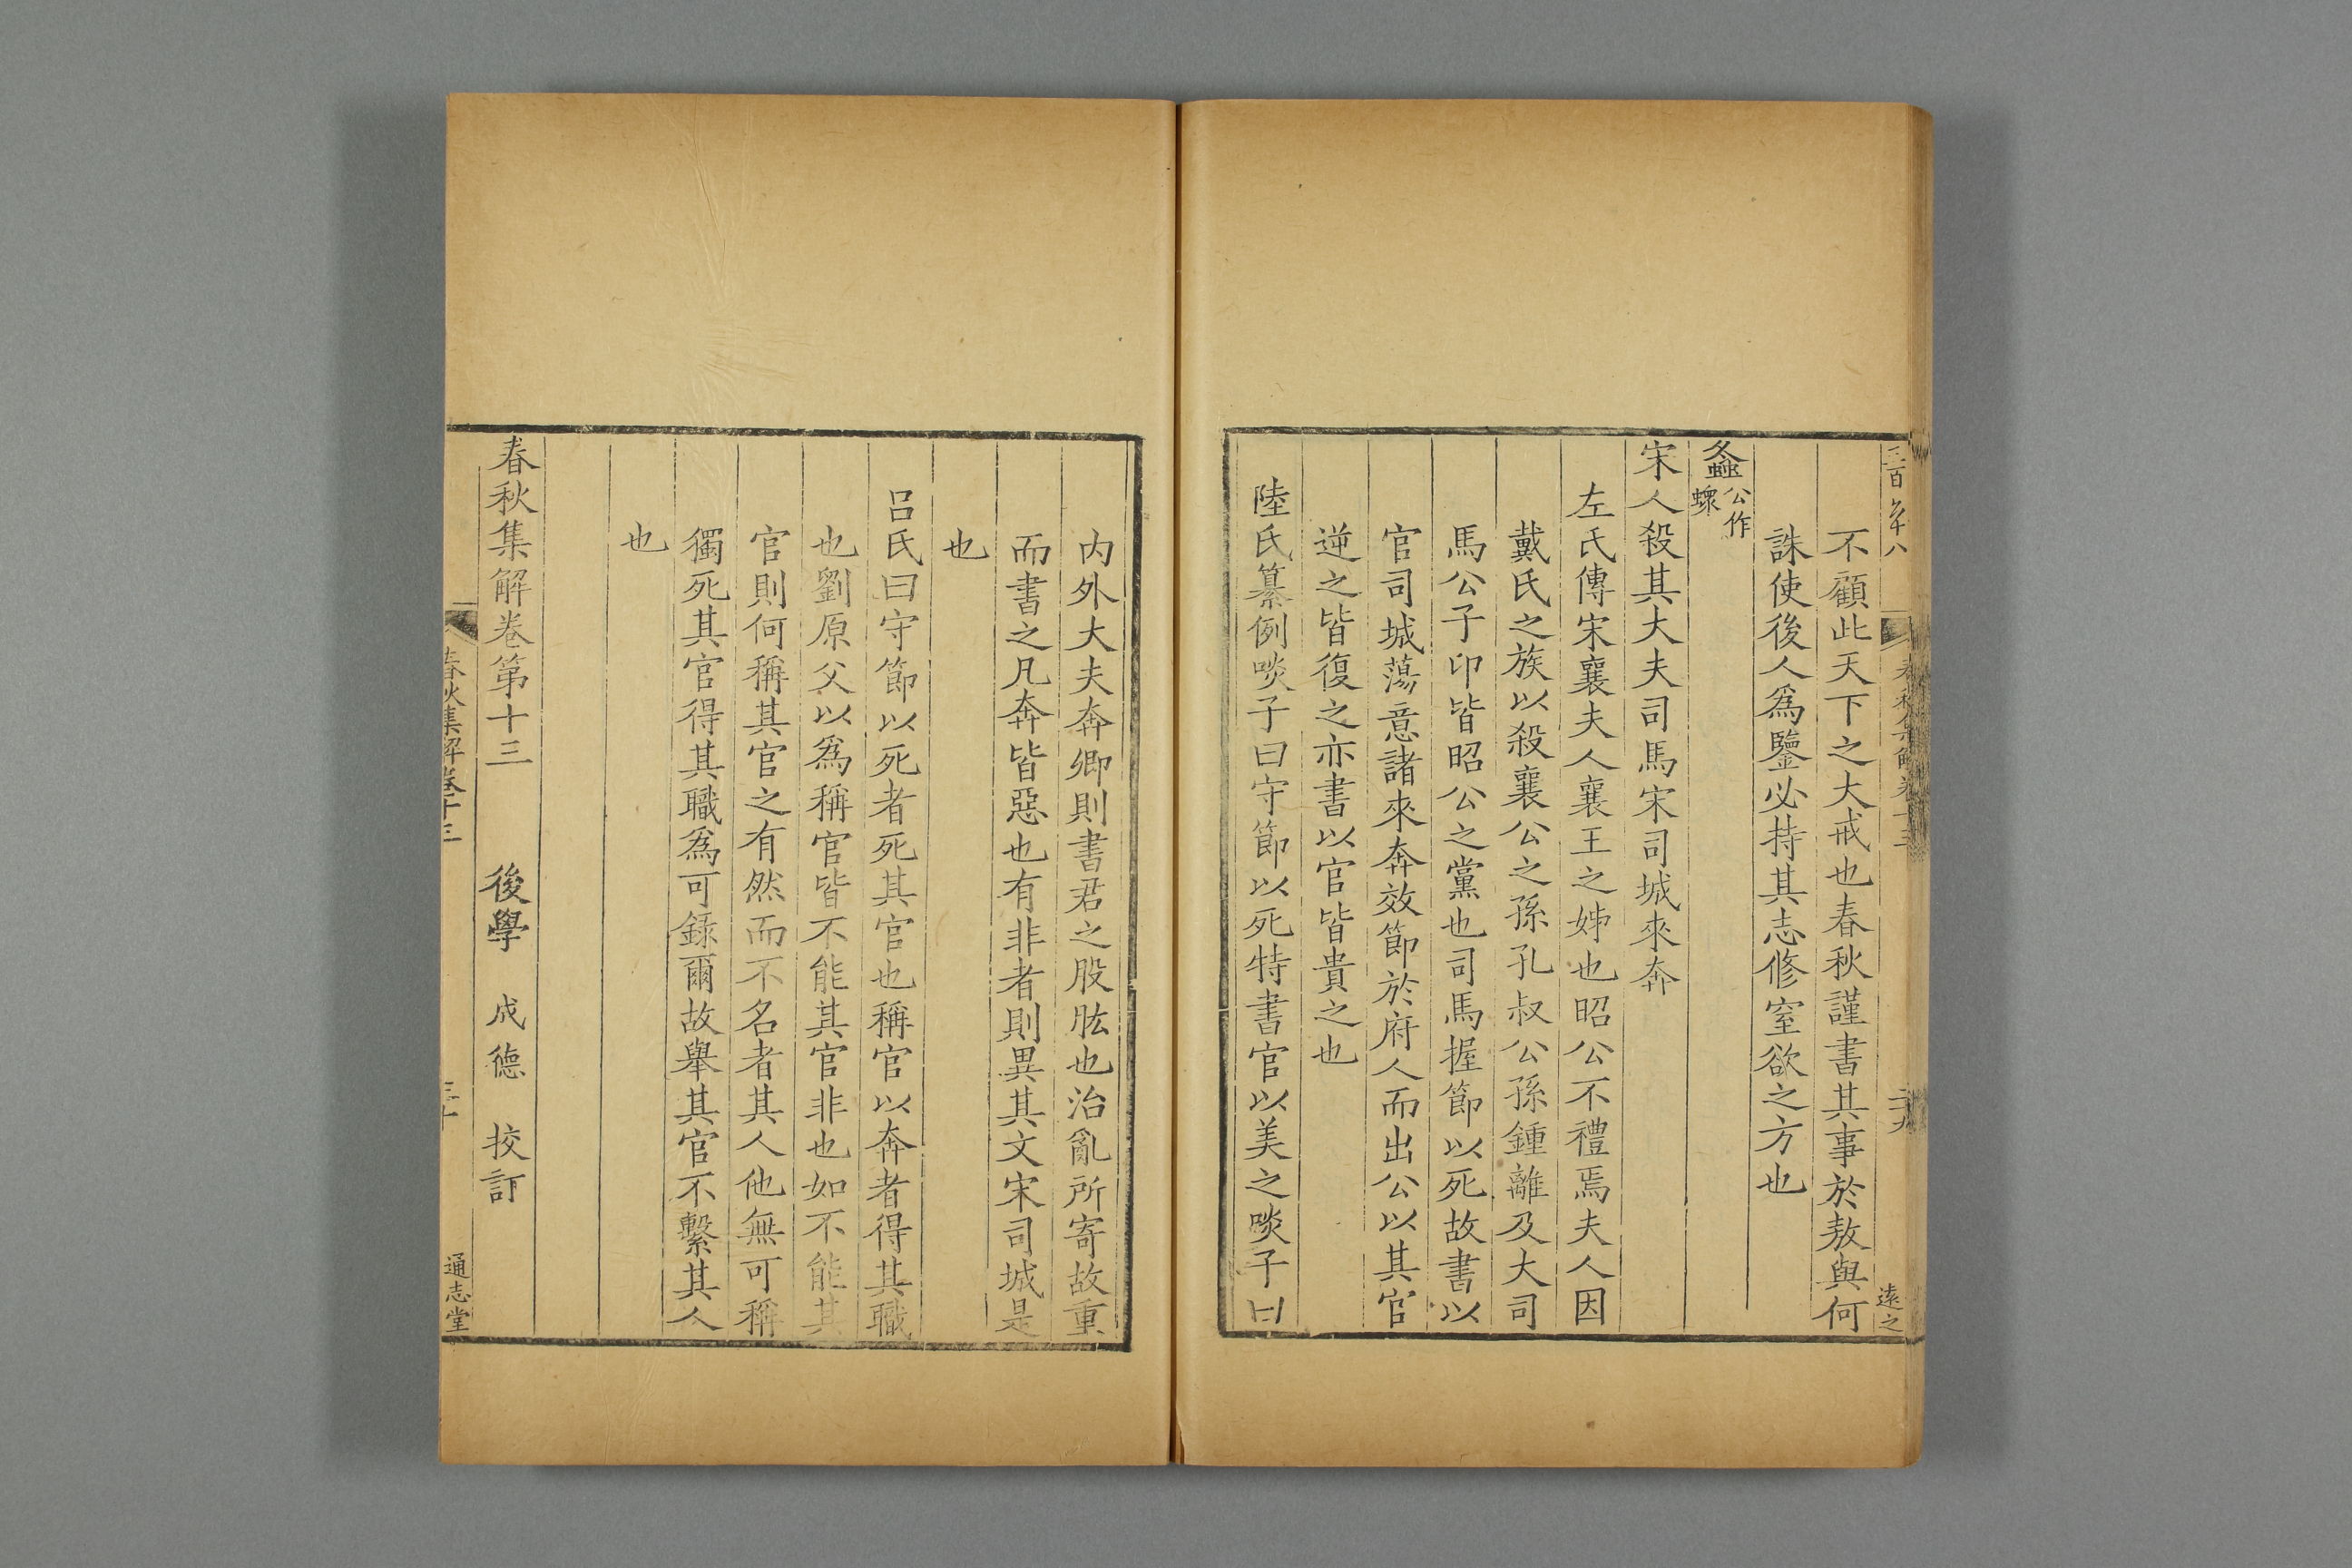 不顧此天下之大戒也春秋謹書其事於敖與何
誅使後人爲鑒必持其志修窒欲之方也
螽公作
蝝
宋人殺其大夫司馬宋司城來奔
左氏傳宋襄夫人襄王之姊也昭公不禮焉夫人因
戴氏之族以殺襄公之孫孔叔公孫鍾離及大司
馬公子卬皆昭公之黨也司馬握節以死故書以
官司城蕩意諸來奔效節於府人而出公以其官
逆之皆復之亦書以官皆貴之也
陸氏纂例啖子曰守節以死特書官以美之啖子曰
內外大夫奔卿則書君之股肱也治亂所寄故重
而書之凡奔皆惡也有非者則異其文宋司城是
也
呂氏曰守節以死者死其官也稱官以奔者得其職
也劉原父以爲稱官皆不能其官非也如不能其
官則何稱其官之有然而不名者其人他無可稱
獨死其官得其職爲可錄爾故舉其官不繫其人
也
春秋集解卷第十三　後學　成德　挍訂
春秋集解卷十三　三十　通志堂